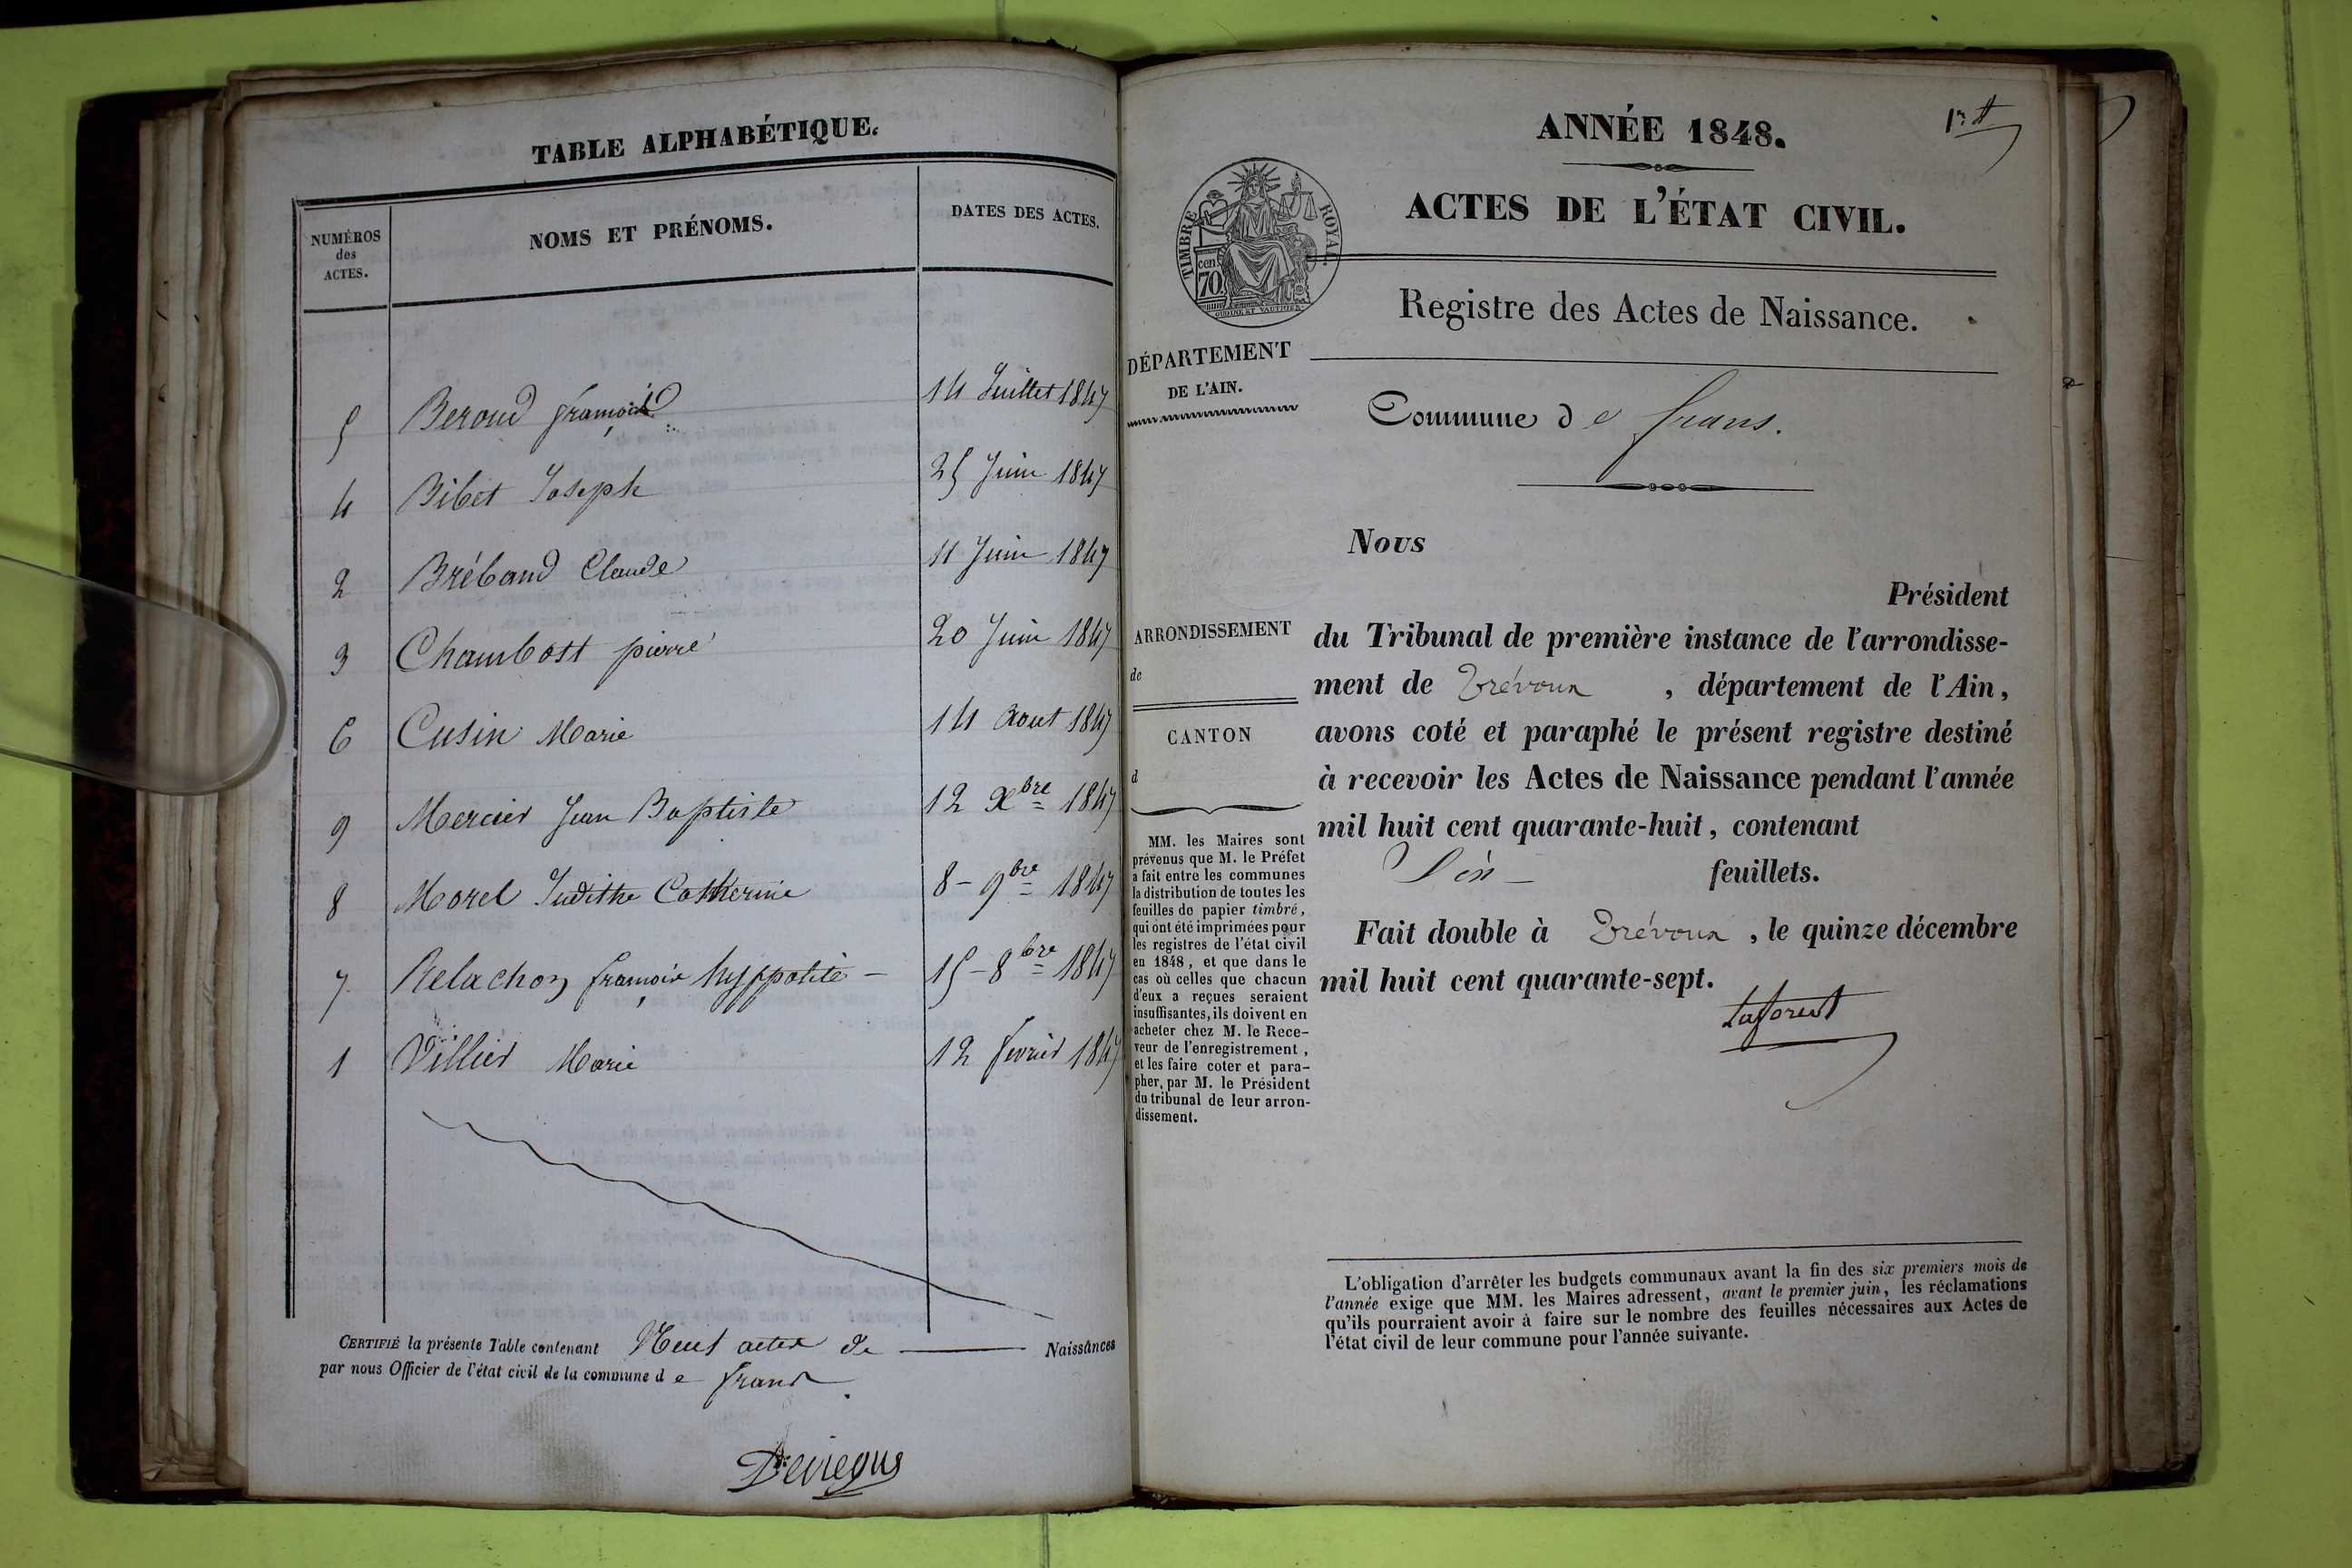 TABLE ALPHABÉTIQUE.
NUMÉROS
des
ACTES.
NOMS ET PRÉNOMS.
DATES DES ACTES.
5 Beroud françois 14 Juillet 1847
4 Bibet Joseph 25 Juin 1847
2 Bréband Claude 11 Juin 1847
3 Chambost pierre 20 Juin 1847
6 Cusin Marie 14 Aout 1847
9 Mercier Jean Baptiste 12 Xbre 1847
8 Morel Judithe Catherine 8 - 9bre 1847
7 Relachon françois hyppolite - 15 - 8bre 1847
1 Villier Marie 12 fevrier 1847
CERTIFIÉ la présente Table contenant Neuf actes de Naissances
par nous Officier de l'état civil de la commune de frans.
ANNÉE 1848.
TIMBRE ROYAL
cen.
70.
ACTES DE L'ÉTAT CIVIL.
Registre des Actes de Naissance.
DÉPARTEMENT
DE L'AIN.
Commune de frans.
Nous
Président
du Tribunal de première instance de l'arrondisse-
ment de Trévoux , département de l'Ain,
avons coté et paraphé le présent registre destiné
à recevoir les Actes de Naissance pendant l'année
mil huit cent quarante-huit, contenant
feuillets.
Fait double à Trévoux , le quinze décembre
mil huit cent quarante-sept.
Laforest
ARRONDISSEMENT
de
CANTON
d
MM. les Maires sont
prévenus que M. le Préfet
a fait entre les communes
la distribution de toutes les
feuilles de papier timbré,
qui ont été imprimées pour
les registres de l'état civil
en 1848, et que dans le
cas où celles que chacun
d'eux a reçues seraient
insuffisantes, ils doivent en
acheter chez M. le Rece-
veur de l'enregistrement,
et les faire coter et para-
pher, par M. le Président
du tribunal de leur arron-
dissement.
L'obligation d'arrêter les budgets communaux avant la fin des six premiers mois de
l'année exige que MM. les Maires adressent, avant le premier juin, les réclamations
qu'ils pourraient avoir à faire sur le nombre des feuilles nécessaires aux Actes de
l'état civil de leur commune pour l'année suivante.